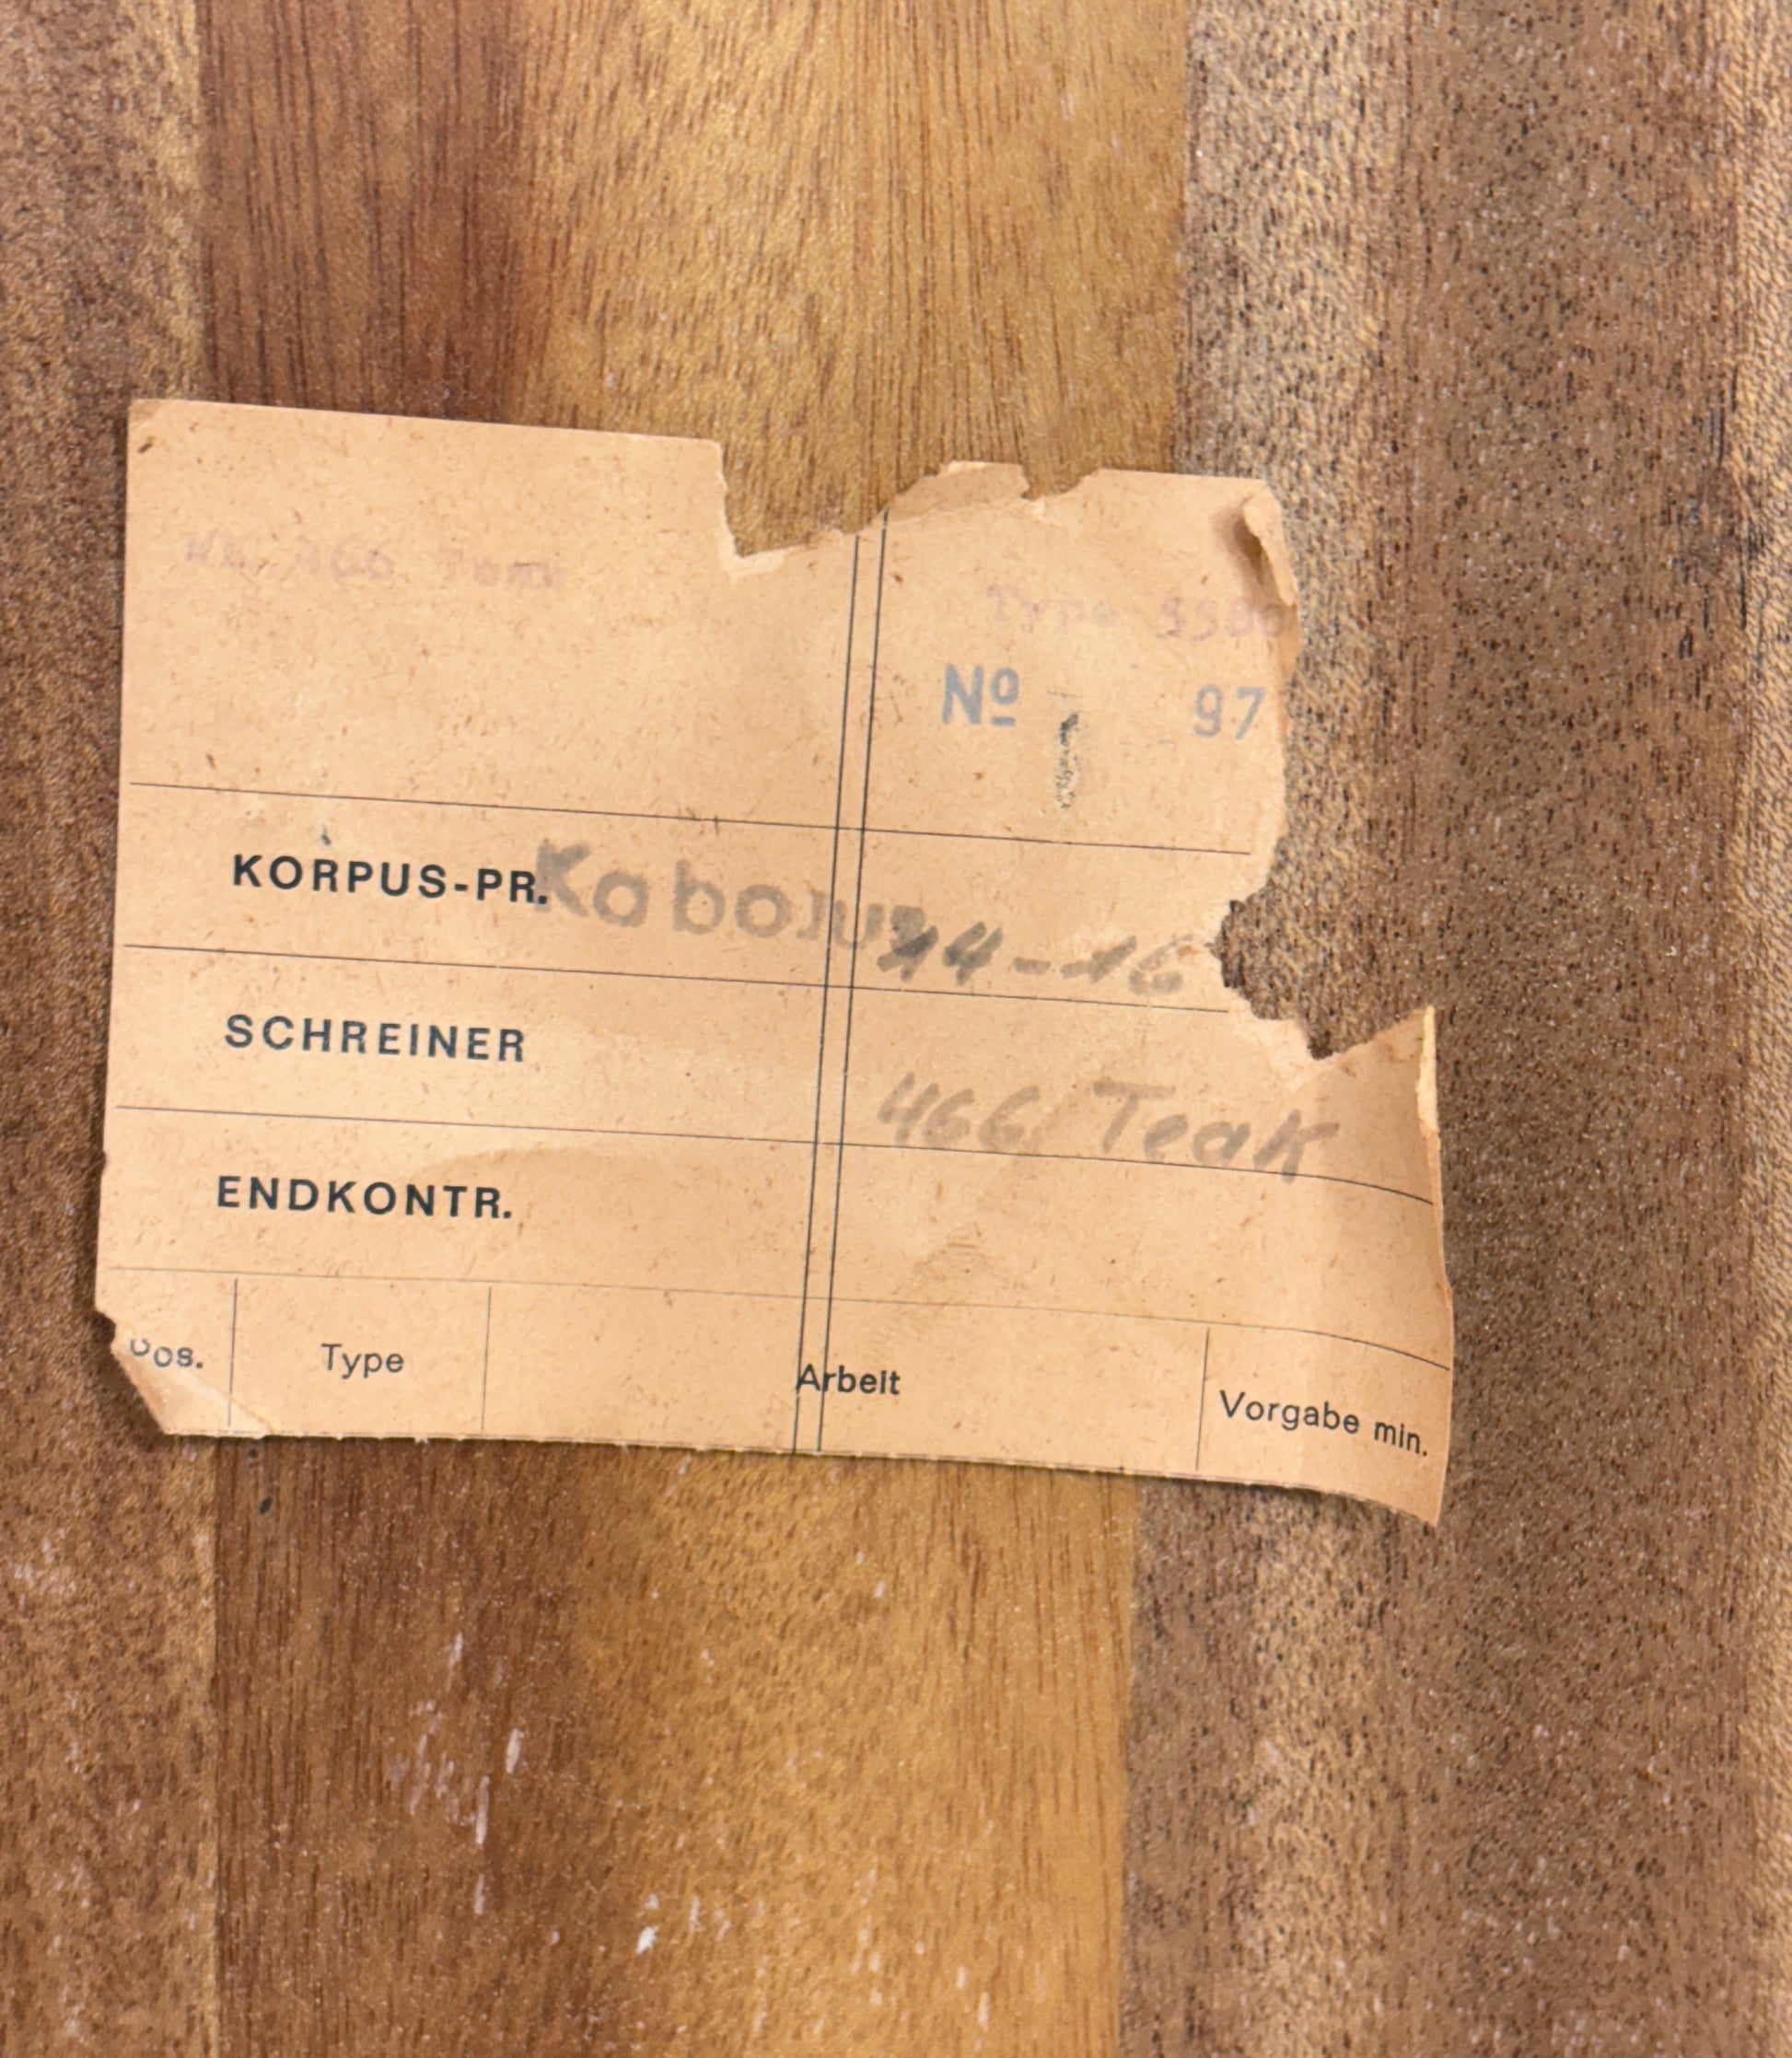 466
Type
No 97
KORPUS-PR.
14-16
SCHREINER
466 Teak
ENDKONTR.
Pos. Type Arbeit Vorgabe min.